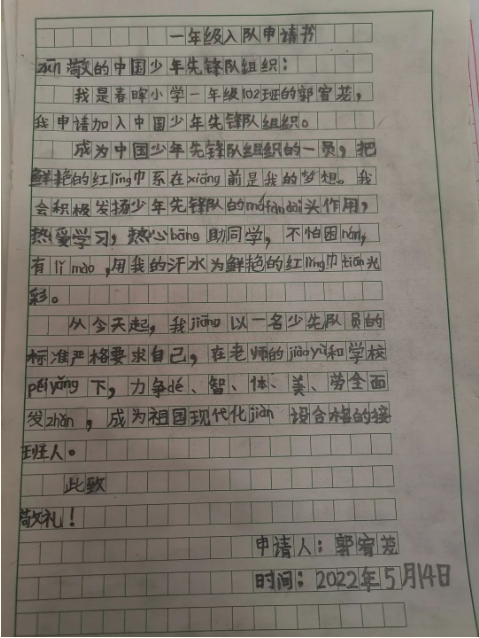 一年级入队申请书
zūn敬的中国少年先锋队组织：
我是春晖小学一年级102班的郭宥
我申请加入中国少年先锋队组织。
成为中国少年先锋队组织的一员，把
鲜艳的红lǐng巾系在xiōng前是我的梦想。我
会积极发扬少年先锋队的mófàndài头作用，
热爱学习，热心bāng助同学，不怕困nán，
有lǐ mào，用我的汗水为鲜艳的红lǐng巾tiān光
彩。
从今天起，我jiāng以一名少先队员的
标准严格要求自己，在老师的jiàoyù和学校
péiyǎng下，力争dé、智、体、美、劳全面
发zhǎn，成为祖国现代化jiàn设合格的接
班人。
此致
敬礼！
申请人：郭宥
时间：2022年5月14日